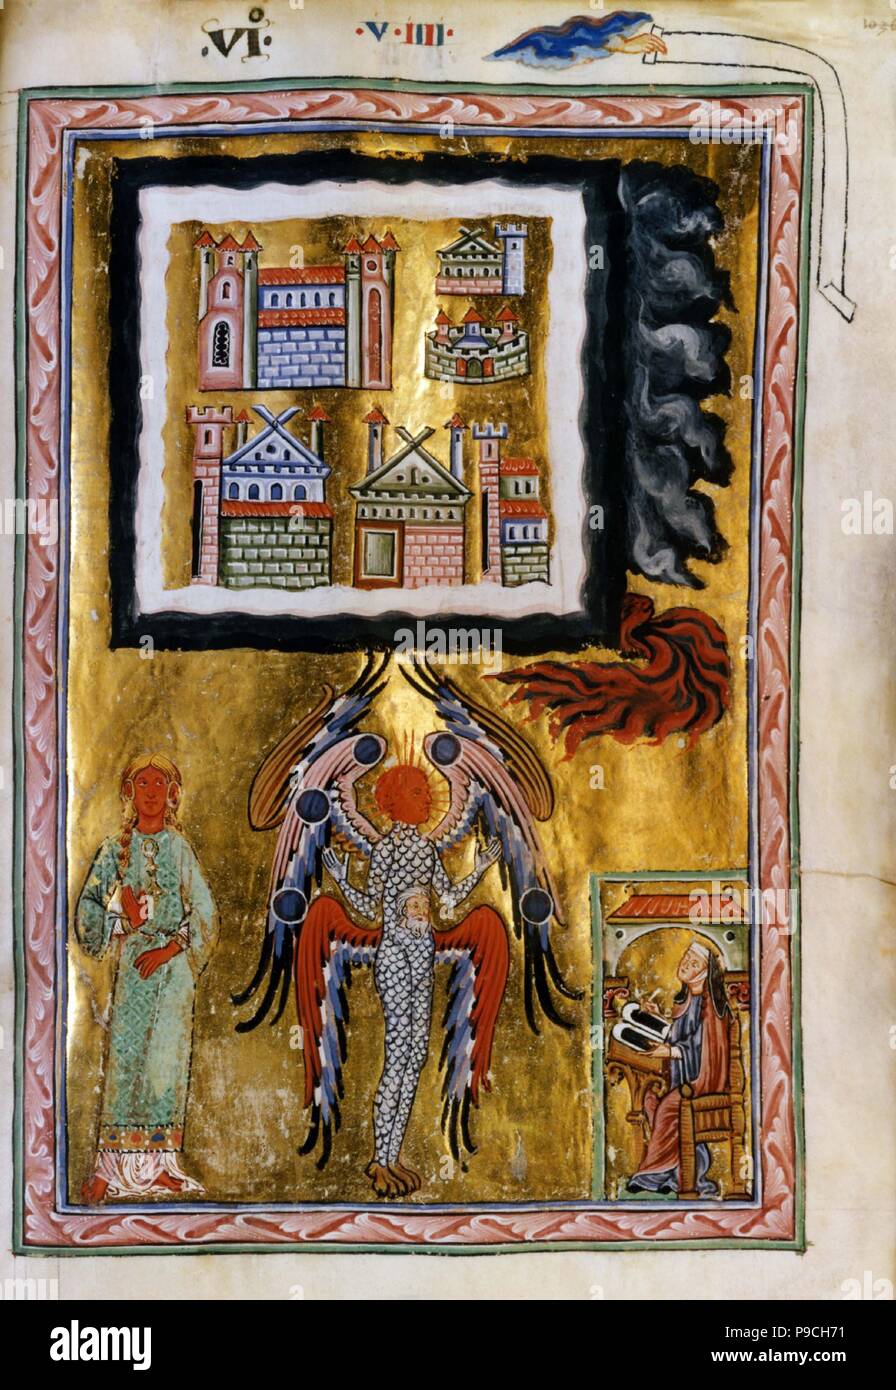 ·VI· ·V·IIII·
alamy
Image ID: P9CH71
www.alamy.com